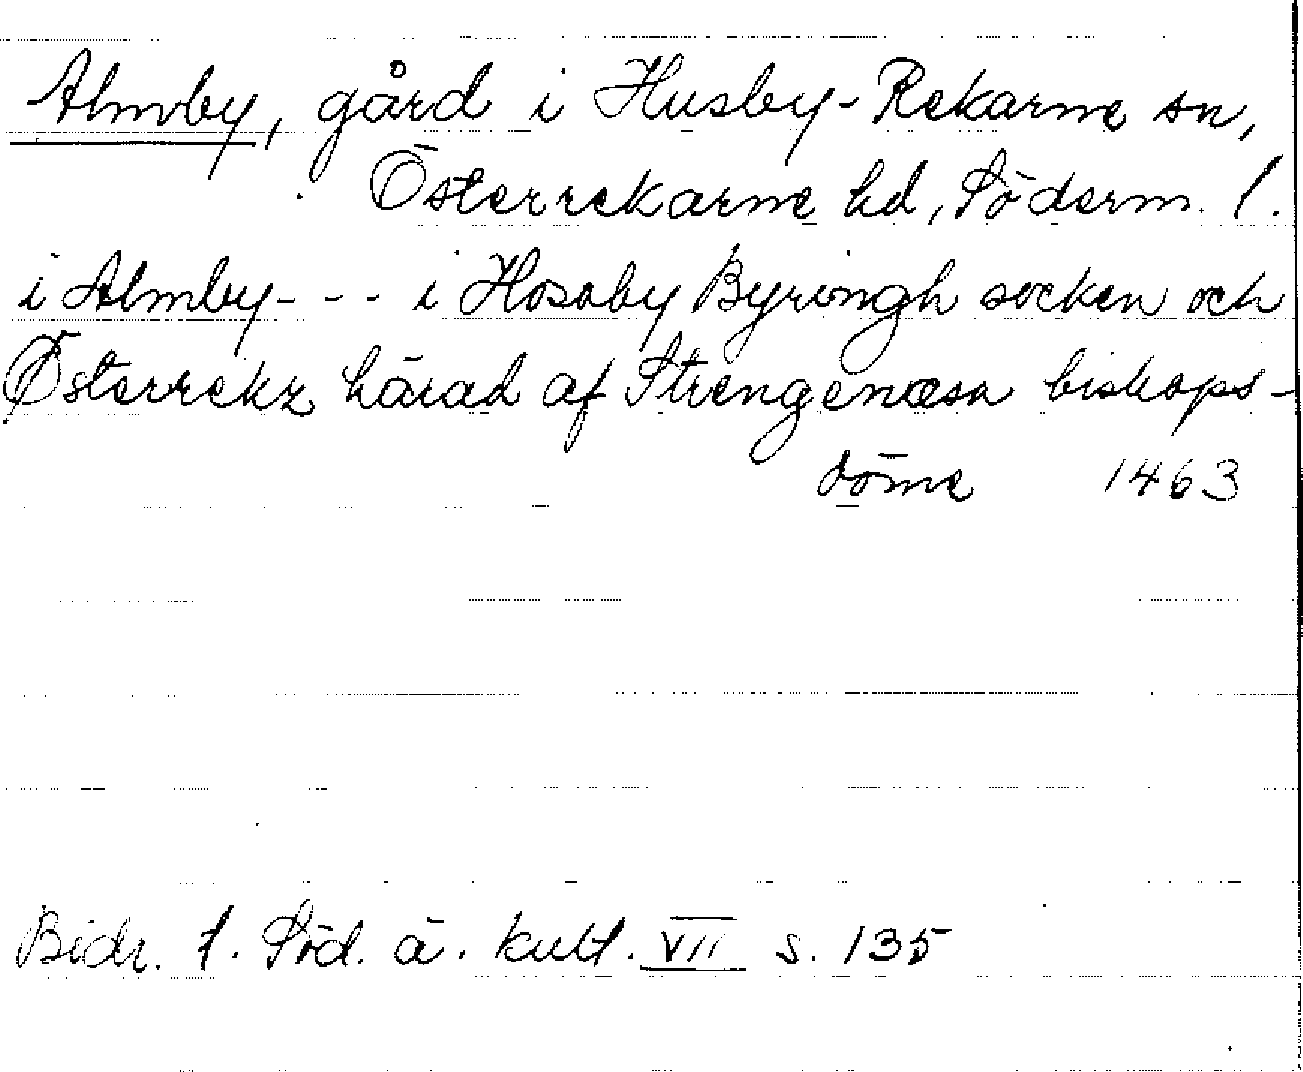 Almby, gård i Husby-Rekarne sn,
Österrekarne hd, Söderm. l.
i Almby - - - i Hosaby Byringh socken och
Østerrekz härad af Strengenæsa biskops-
döme 1463
Bidr. t. Söd. ä. kult. VII s. 135